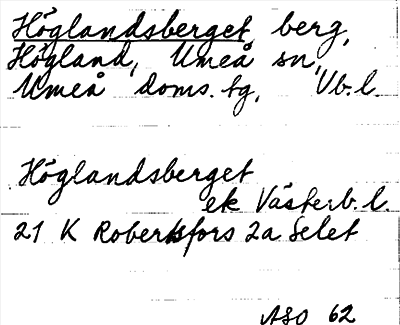 Höglandsberget berg,
Högland, Umeå sn,
Umeå doms. tg, Vb. l.
Höglandsberget
ek Västerb. l.
21 K Robertsfors 2a Selet
ASO 62